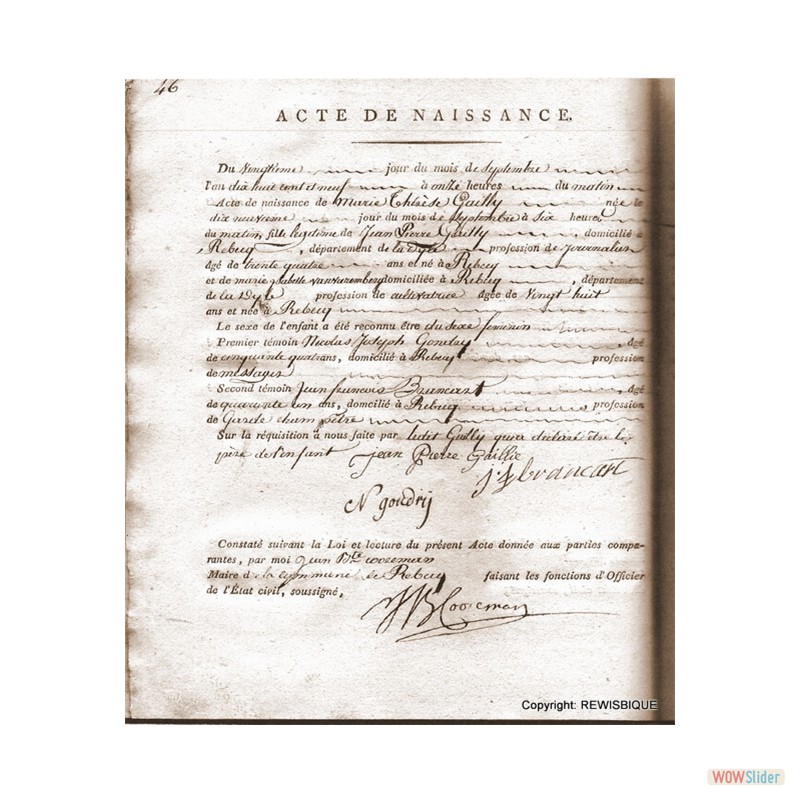 46
ACTE DE NAISSANCE.
Du Vingtieme jour du mois de Septembre
l'an dix huit cent et neuf à onze heures du matin
Acte de naissance de Marie Thérèse Gailly née le
dix neuvieme jour du mois de Septembre à six heures
du matin, fille legitime de Jean Pierre Gailly domicilié à
Rebecq, département de la Dyle profession de journalier
âgé de trente quatre ans et né à Rebecq
et de marie isabelle domiciliée à Rebecq, département
de la Dyle profession de cultivatrice âgée de Vingt huit
ans et née à Rebecq
Le sexe de l'enfant a été reconnu être du sexe feminin
Premier témoin Nicolas Joseph âgé
de cinquante quatr ans, domicilié à Rebecq profession
de messager
Second témoin Jean francois Brancart âgé
de quarante un ans, domicilié à Rebecq profession
de Garde champêtre
Sur la réquisition à nous faite par ledit Gailly qui a déclaré être le
père de l'enfant jean Pierre Gaillie
j f brancart
N gondrij
Constaté suivant la Loi et lecture du présent Acte donnée aux parties compa-
rantes, par moi Jean Bte Cooreman
Maire de la Commune de Rebecq faisant les fonctions d'Officier
de l'État civil, soussigné,
JB Cooreman
Copyright: REWISBIQUE
WOWSlider